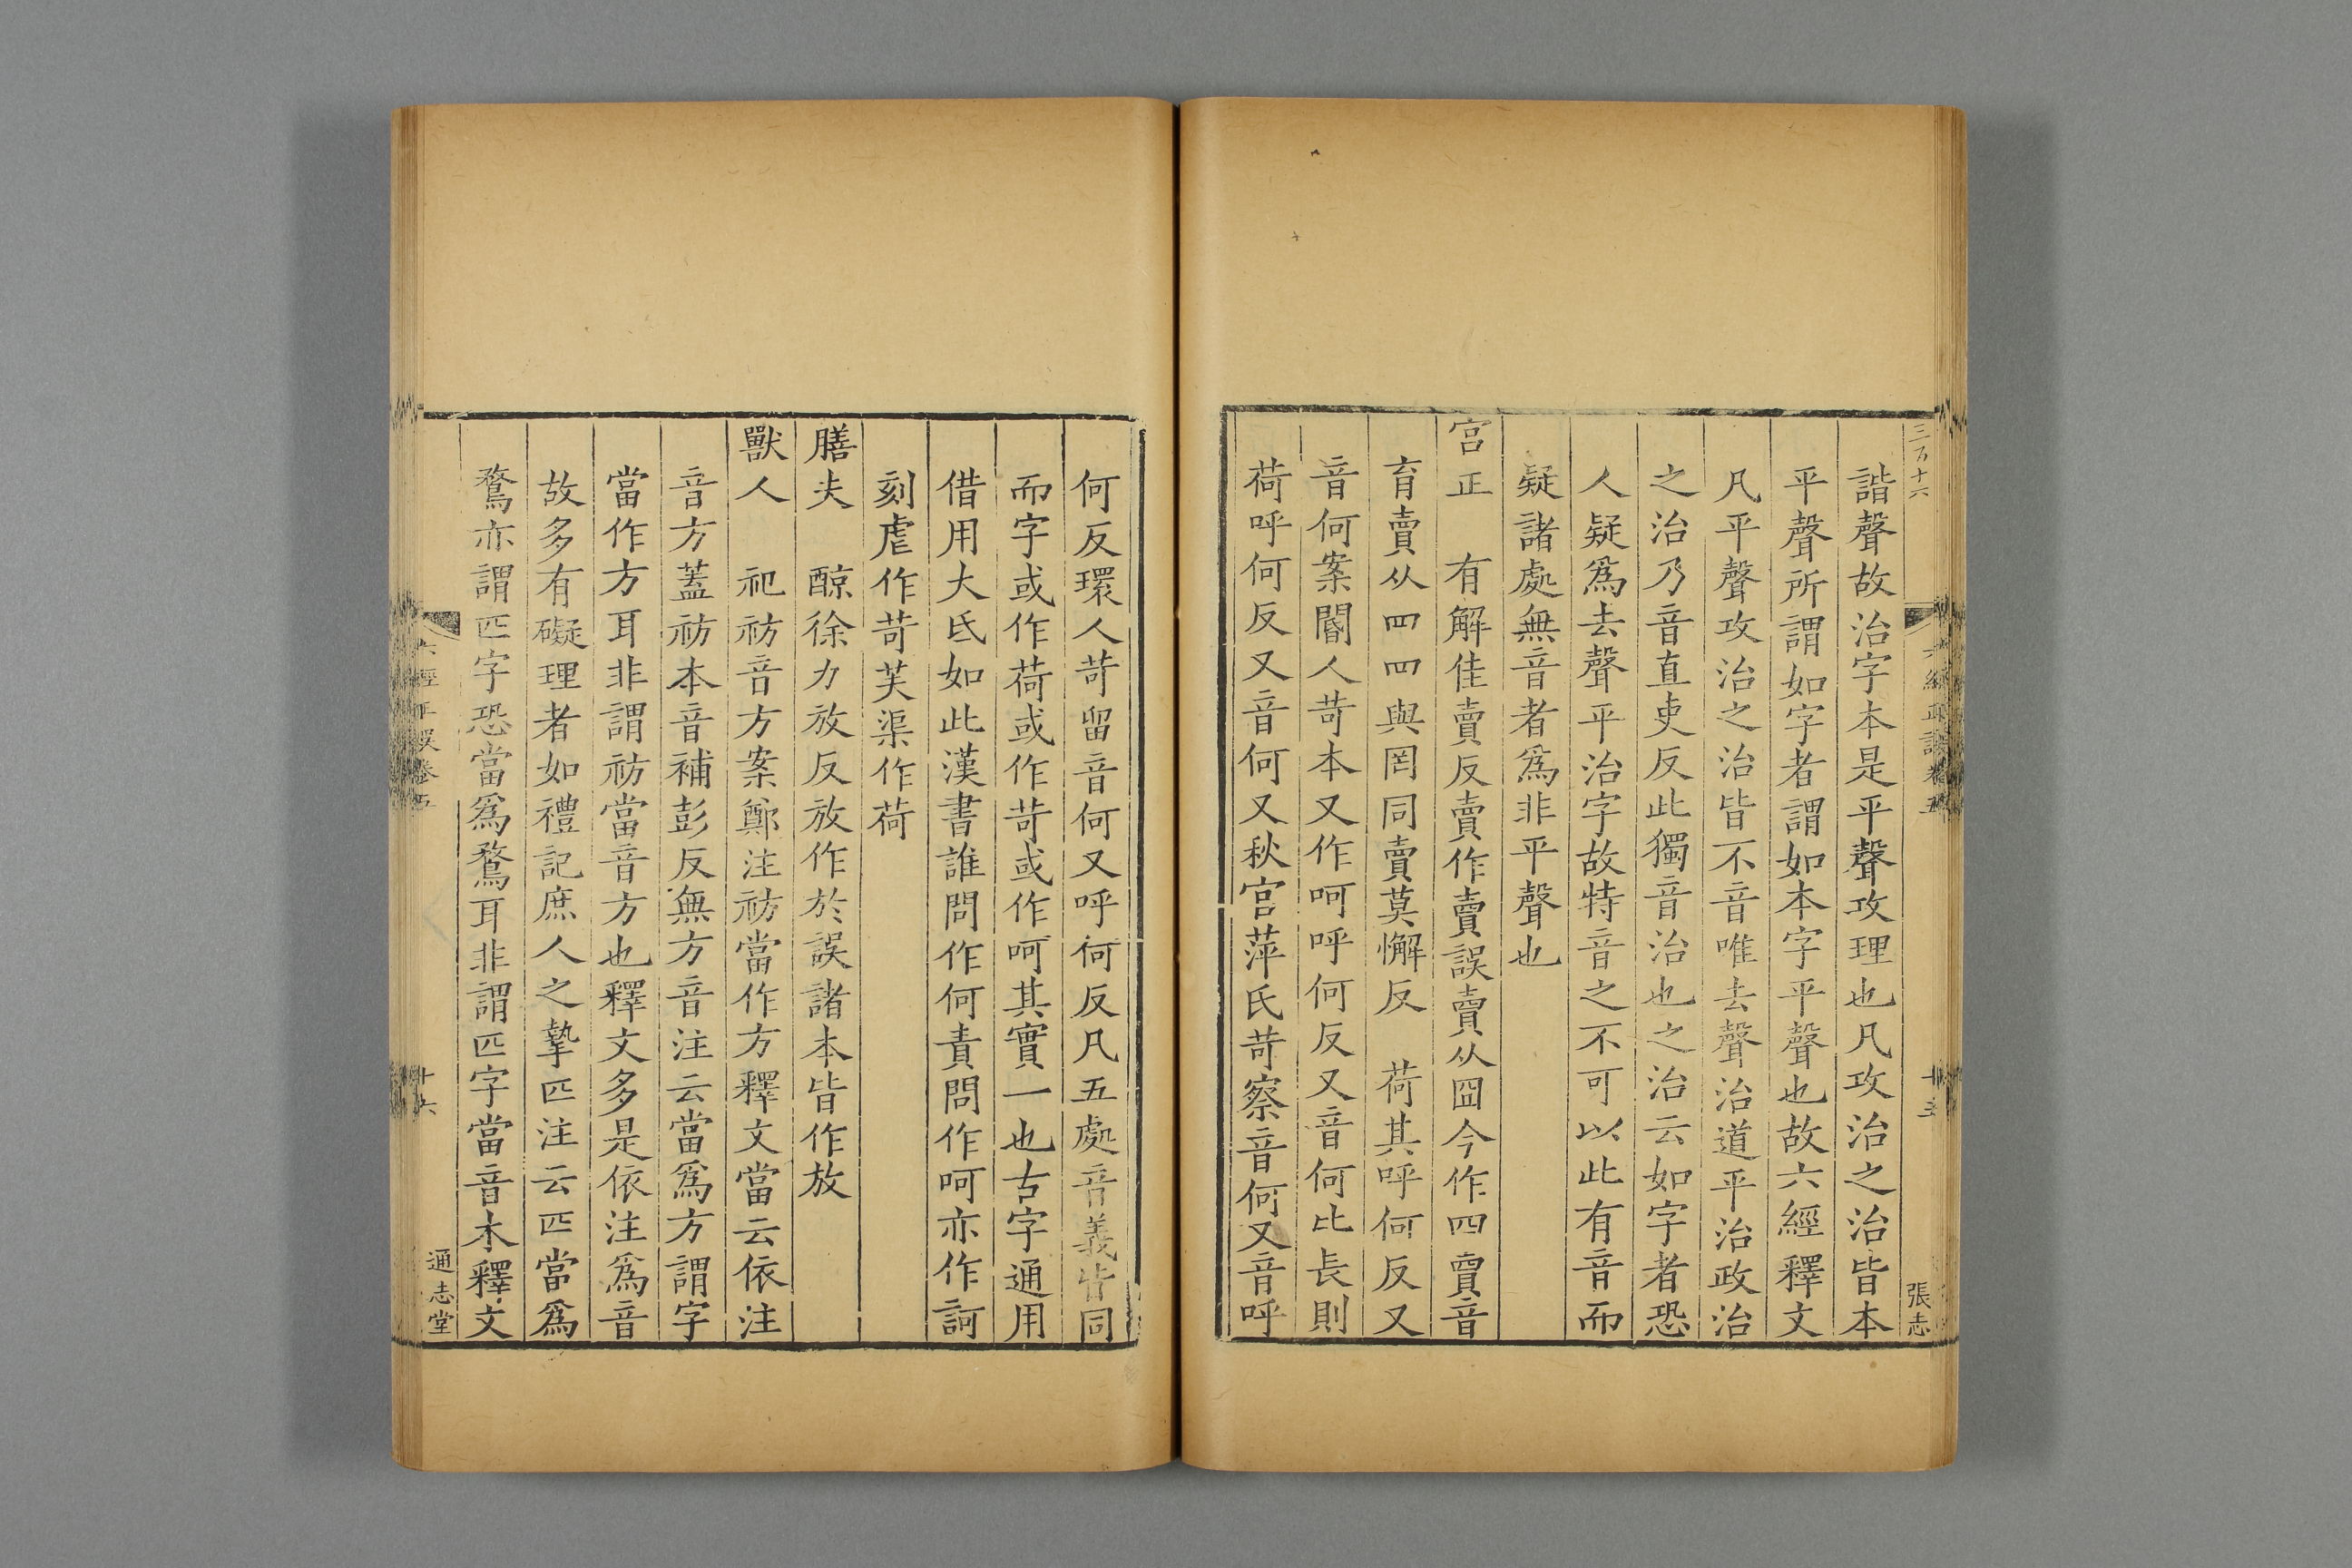 三百十六
六經正誤卷五
十五
張志
諧聲故治字本是平聲攻理也凡攻治之治皆本
平聲所謂如字者謂如本字平聲也故六經釋文
凡平聲攻治之治皆不音唯去聲治道平治政治
之治乃音直吏反此獨音治也之治云如字者恐
人疑爲去聲平治字故特音之不可以此有音而
疑諸處無音者爲非平聲也
宫正　有解佳賣反賣作賣誤賣从囧今作四賣音
育賣从四四與罔同賣莫懈反　荷其呼何反又
音何案閽人苛本又作呵呼何反又音何比長則
荷呼何反又音何又秋官萍氏苛察音何又音呼
何反環人苛留音何又呼何反凡五處音義皆同
而字或作荷或作苛或作呵其實一也古字通用
借用大氐如此漢書誰問作何責問作呵亦作訶
刻虐作苛芙渠作荷
膳夫　醇徐力放反放作於誤諸本皆作放
獸人　祀祊音方案鄭注祊當作方釋文當云依注
音方蓋祊本音補彭反無方音注云當爲方謂字
當作方耳非謂祊當音方也釋文多是依注爲音
故多有礙理者如禮記庶人之摯匹注云匹當爲
鶩亦謂匹字恐當爲鶩耳非謂匹字當音木釋文
六經正誤卷五
十六
通志堂